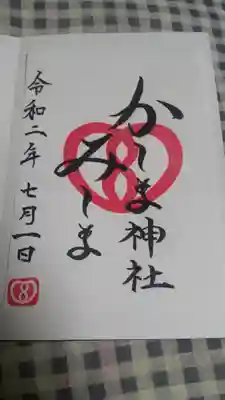 かしま神社
みしま
令和二年七月一日
8